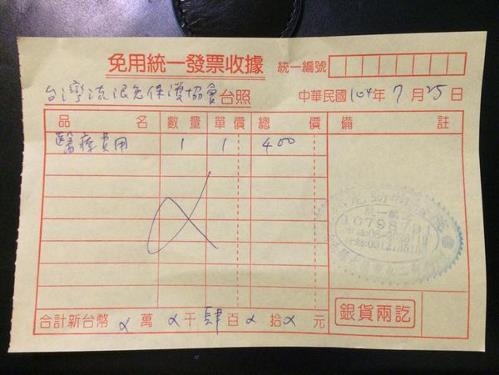 免用統一發票收據
統一編號
台灣流浪兔保護協會台照 中華民國104年7月25日
品名 數量 單價 總價 備註
醫療費用 1 1 400
統一編號
合計新台幣 X 萬 X 千 肆 百 X 拾 X 元
銀貨兩訖